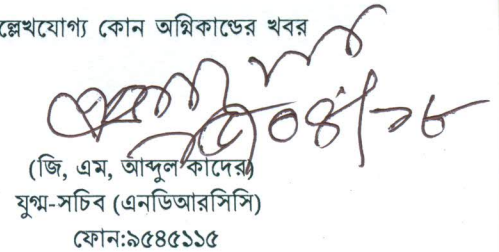 ল্লেখযোগ্য কোন অগ্নিকান্ডের খবর
০৪/১৮
(জি, এম, আব্দুল কাদের)
যুগ্ম-সচিব (এনডিআরসিসি)
ফোন:৯৫৪৫১১৫